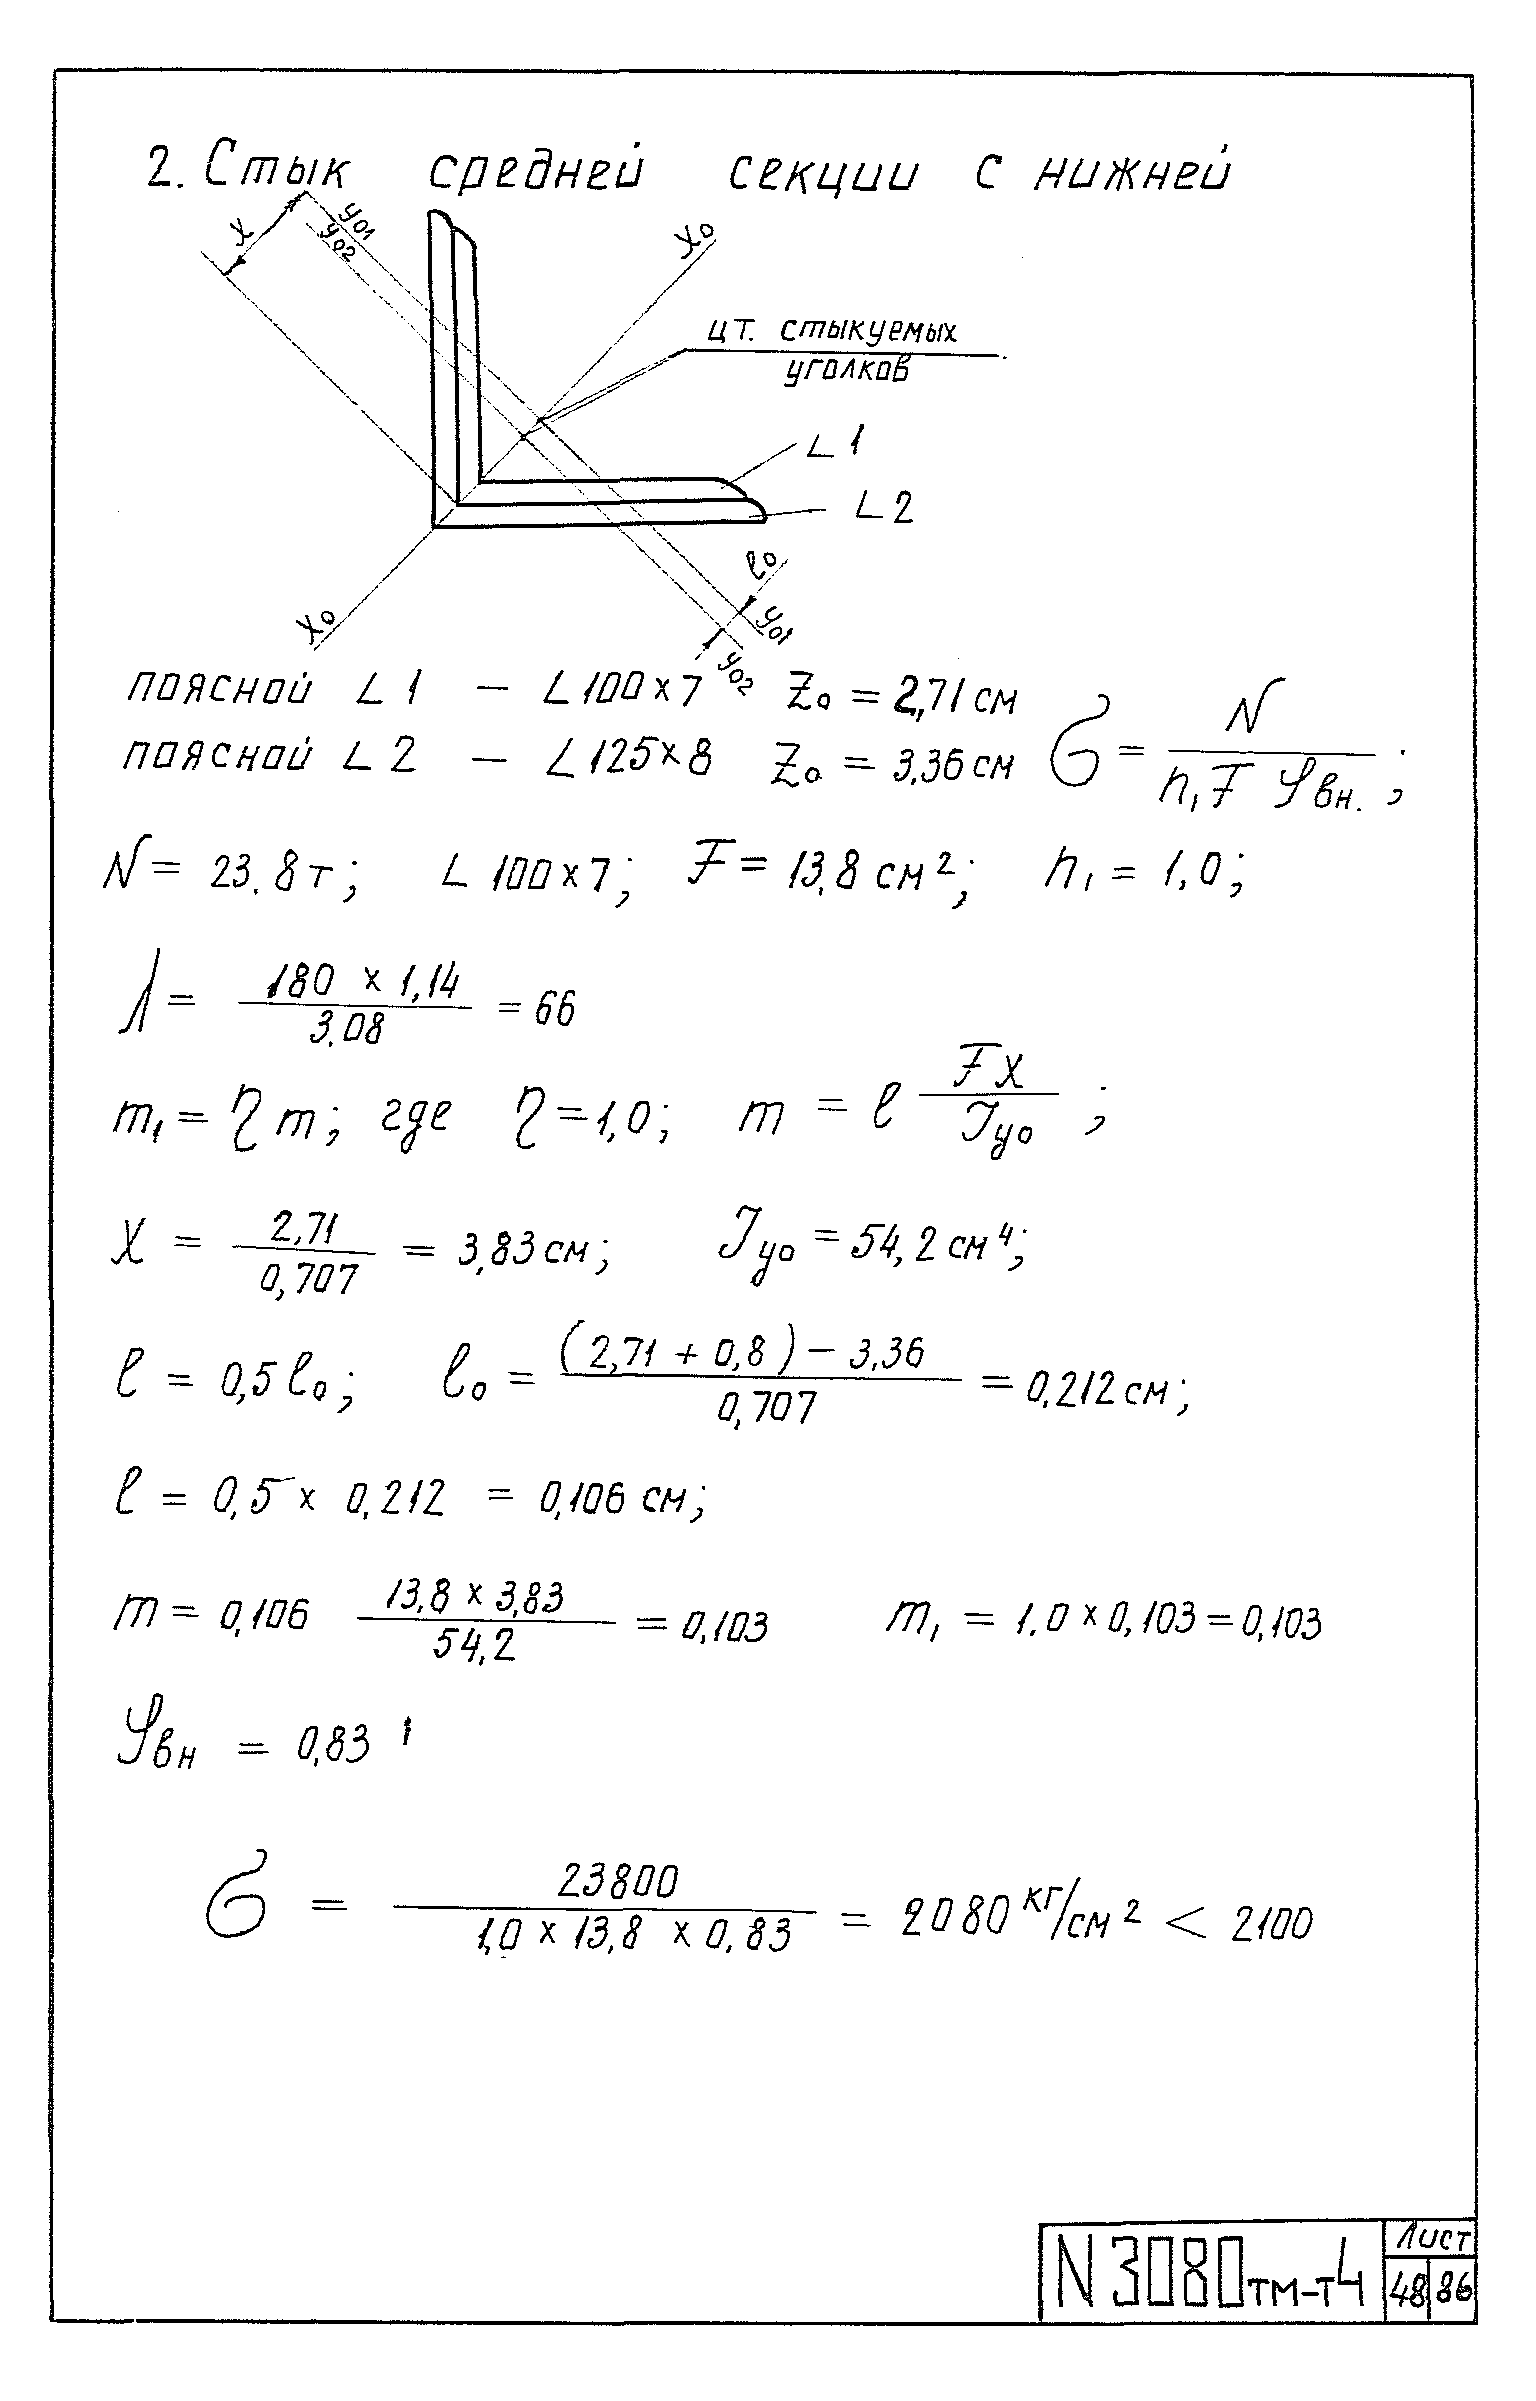 2. Стык средней секции с нижней
X
y01
y02
X0
ц.т. стыкуемых
уголков
∟1
∟2
l0
X0
y01
y02
поясной ∟1 – ∟100×7 Z0 = 2,71 см
поясной ∟2 – ∟125×8 Z0 = 3,36 см
σ = N / (n1 F φвн.) ;
N = 23.8т; ∟100×7; F = 13,8 см²; n1 = 1,0;
λ = (180 × 1,14) / 3.08 = 66
m1 = η m; где η = 1,0; m = l (F X / Jy0) ;
X = 2,71 / 0,707 = 3,83 см; Jy0 = 54,2 см⁴;
l = 0,5 l0; l0 = ((2,71 + 0,8) – 3,36) / 0,707 = 0,212 см;
l = 0,5 × 0,212 = 0,106 см;
m = 0,106 (13,8 × 3,83) / 54,2 = 0,103 m1 = 1.0 × 0,103 = 0,103
φвн = 0,83
σ = 23800 / (1,0 × 13,8 × 0,83) = 2080 кг/см² < 2100
N3080тм-т4
Лист
48 86